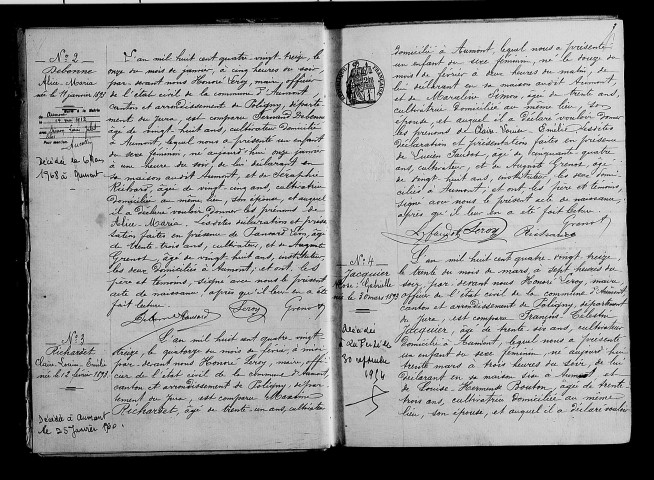 N° 2
Debonne
Alice-Maria
née le 11 janvier 1893
Décédée le
1968 à Aumont
L'an mil huit cent quatre-vingt-treize, le
onze du mois de janvier, à cinq heures du soir
par devant nous Honoré Leroy, maire, officier
de l'état civil de la commune d'Aumont
canton et arrondissement de Poligny, départe-
ment du Jura, est comparu Fernand Debonne
âgé de vingt-huit ans, cultivateur domicilié
à Aumont, lequel nous a présenté un enfant
du sexe féminin, né aujourd'hui onze janvier
à une heure du soir, de lui déclarant en
sa maison audit Aumont, et de Séraphie
Richard, âgée de vingt-cinq ans, cultivatrice
domiciliée au même lieu, son épouse, et auquel
il a déclaré vouloir donner les prénoms de
Alice-Maria. Lesdites déclaration et présen-
tation faites en présence de
de trente-trois ans, cultivateur, et de August
Grenot, âgé de vingt-huit ans, instituteur,
les deux domiciliés à Aumont; et ont les
père et témoins, signé avec nous le présent
acte de naissance, après qu'il leur en a été
fait lecture.
Debonne Leroy Grenot
N° 3
Richardet
Claire Émilie
née le 12 février 1893
Décédée à Aumont
le 25 janvier
L'an mil huit cent quatre-vingt
treize, le quatorze du mois de février, à
par devant nous Honoré Leroy, maire, offi-
cier de l'état civil de la commune d'Aumont,
canton et arrondissement de Poligny, dépar-
tement du Jura, est comparu Maxime
Richardet, âgé de trente-un ans, cultivateur
domicilié à Aumont, lequel nous a présenté
un enfant du sexe féminin, né le douze du
mois de février à deux heures du matin, de
lui déclarant en sa maison audit Aumont
et de âgée de trente ans,
cultivatrice domiciliée au même lieu, son
épouse, et auquel il a déclaré vouloir donner
les prénoms de Claire Émilie. Lesdites
déclaration et présentation faites en présence
de Lucien de cinquante-quatre
ans, cultivateur, et de August Grenot, âgé
de vingt-huit ans, instituteur, les deux domi-
ciliés à Aumont; et ont les père et témoins,
signé avec nous le présent acte de naissance,
après qu'il leur en a été fait lecture.
Leroy Grenot
Richardet
N° 4
Jacquier
Gabrielle
née le 30 mars 1893
Décédée
30 septembre
1954
L'an mil huit cent quatre-vingt-treize,
le trente du mois de mars, à sept heures du
soir, par devant nous Honoré Leroy, maire
officier de l'état civil de la commune d'Aumont,
canton et arrondissement de Poligny, département
du Jura, est comparu François Célestin
Jacquier, âgé de trente-six ans, cultivateur
domicilié à Aumont, lequel nous a présenté
un enfant du sexe féminin, né aujourd'hui
trente mars à trois heures du soir, de lui
déclarant en sa maison sise à Aumont et
de Louise Hermance Bouton, âgée de trente
trois ans, cultivatrice domiciliée au même
lieu, son épouse, et auquel il a déclaré vouloir